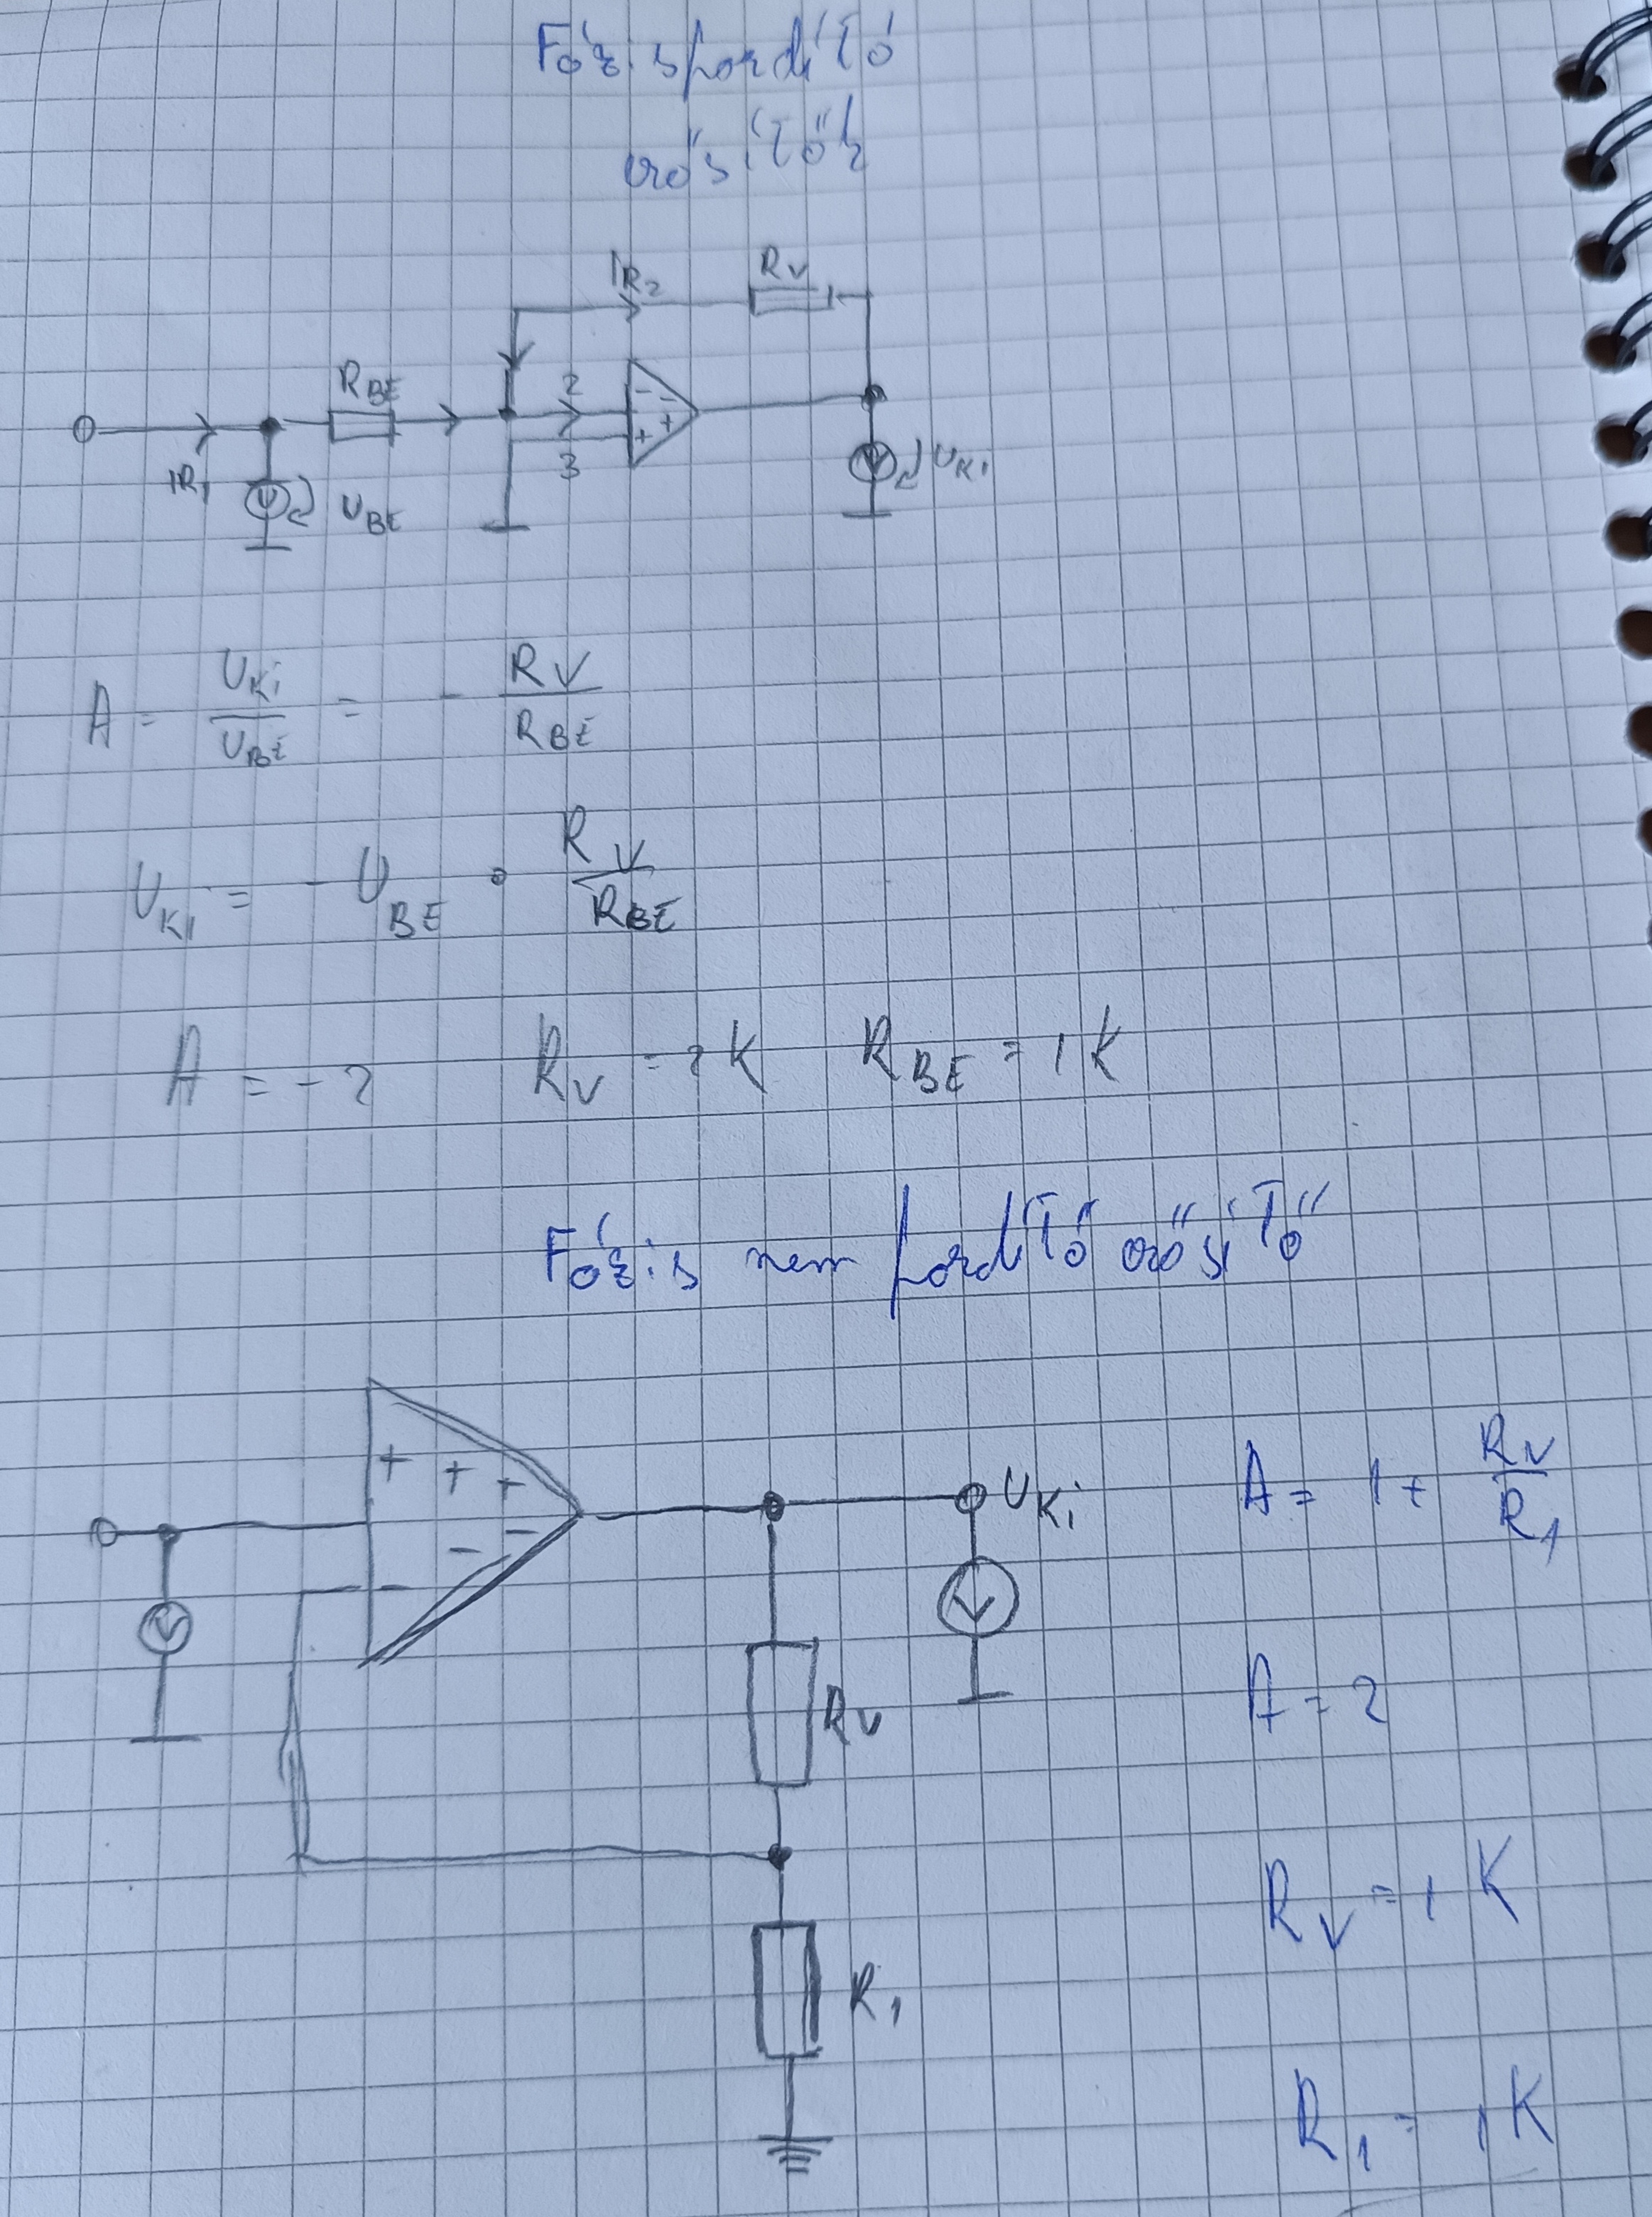 Fázisfordító
erősítők
IR2 RV
RBE
2
- -
+ +
3
IR1
UBE
UKi
A = UKi / UBE = - RV / RBE
UKi = - UBE · RV / RBE
A = -2 RV = 2K RBE = 1K
Fázis nem fordító erősítő
+ + +
- - -
UKi
A = 1 + RV / R1
RV
A = 2
RV = 1K
R1
R1 = 1K